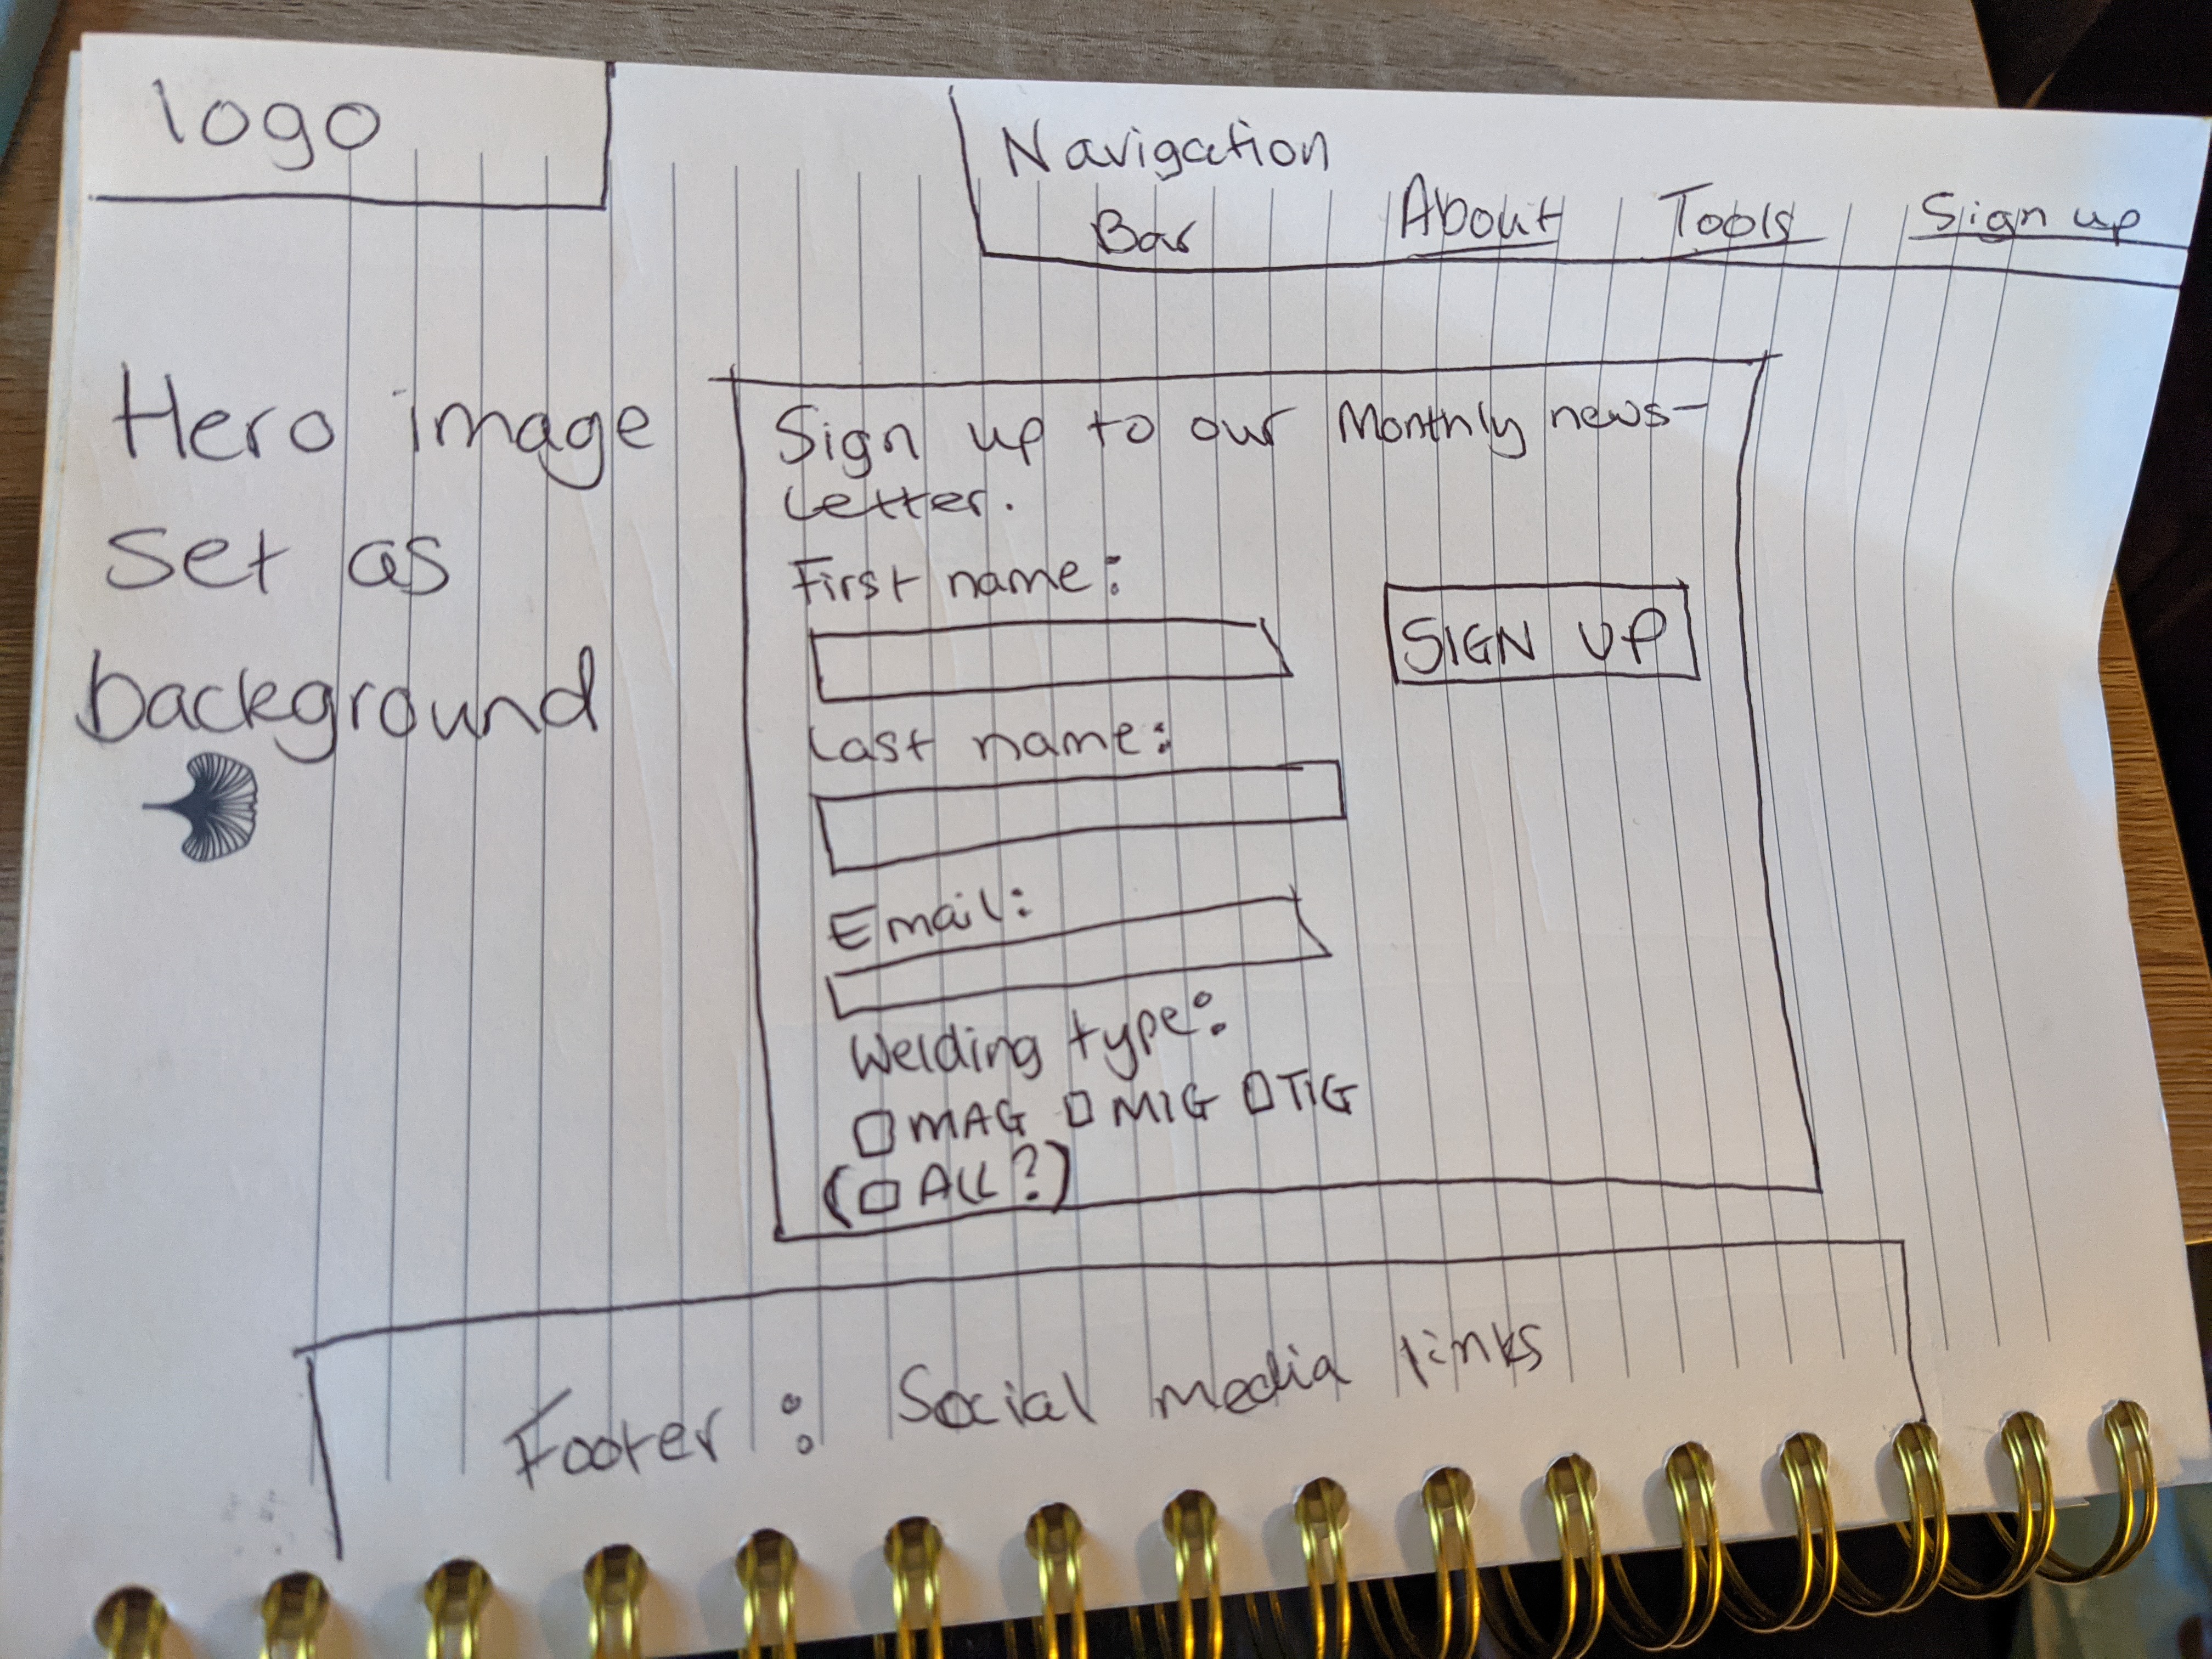 logo
Navigation
Bar About Tools Sign up
Hero image
set as
background
Sign up to our Monthly news-
letter.
First name:
SIGN UP
Last name:
Email:
Welding type:
MAG MIG TIG
(ALL?)
Footer : Social media links